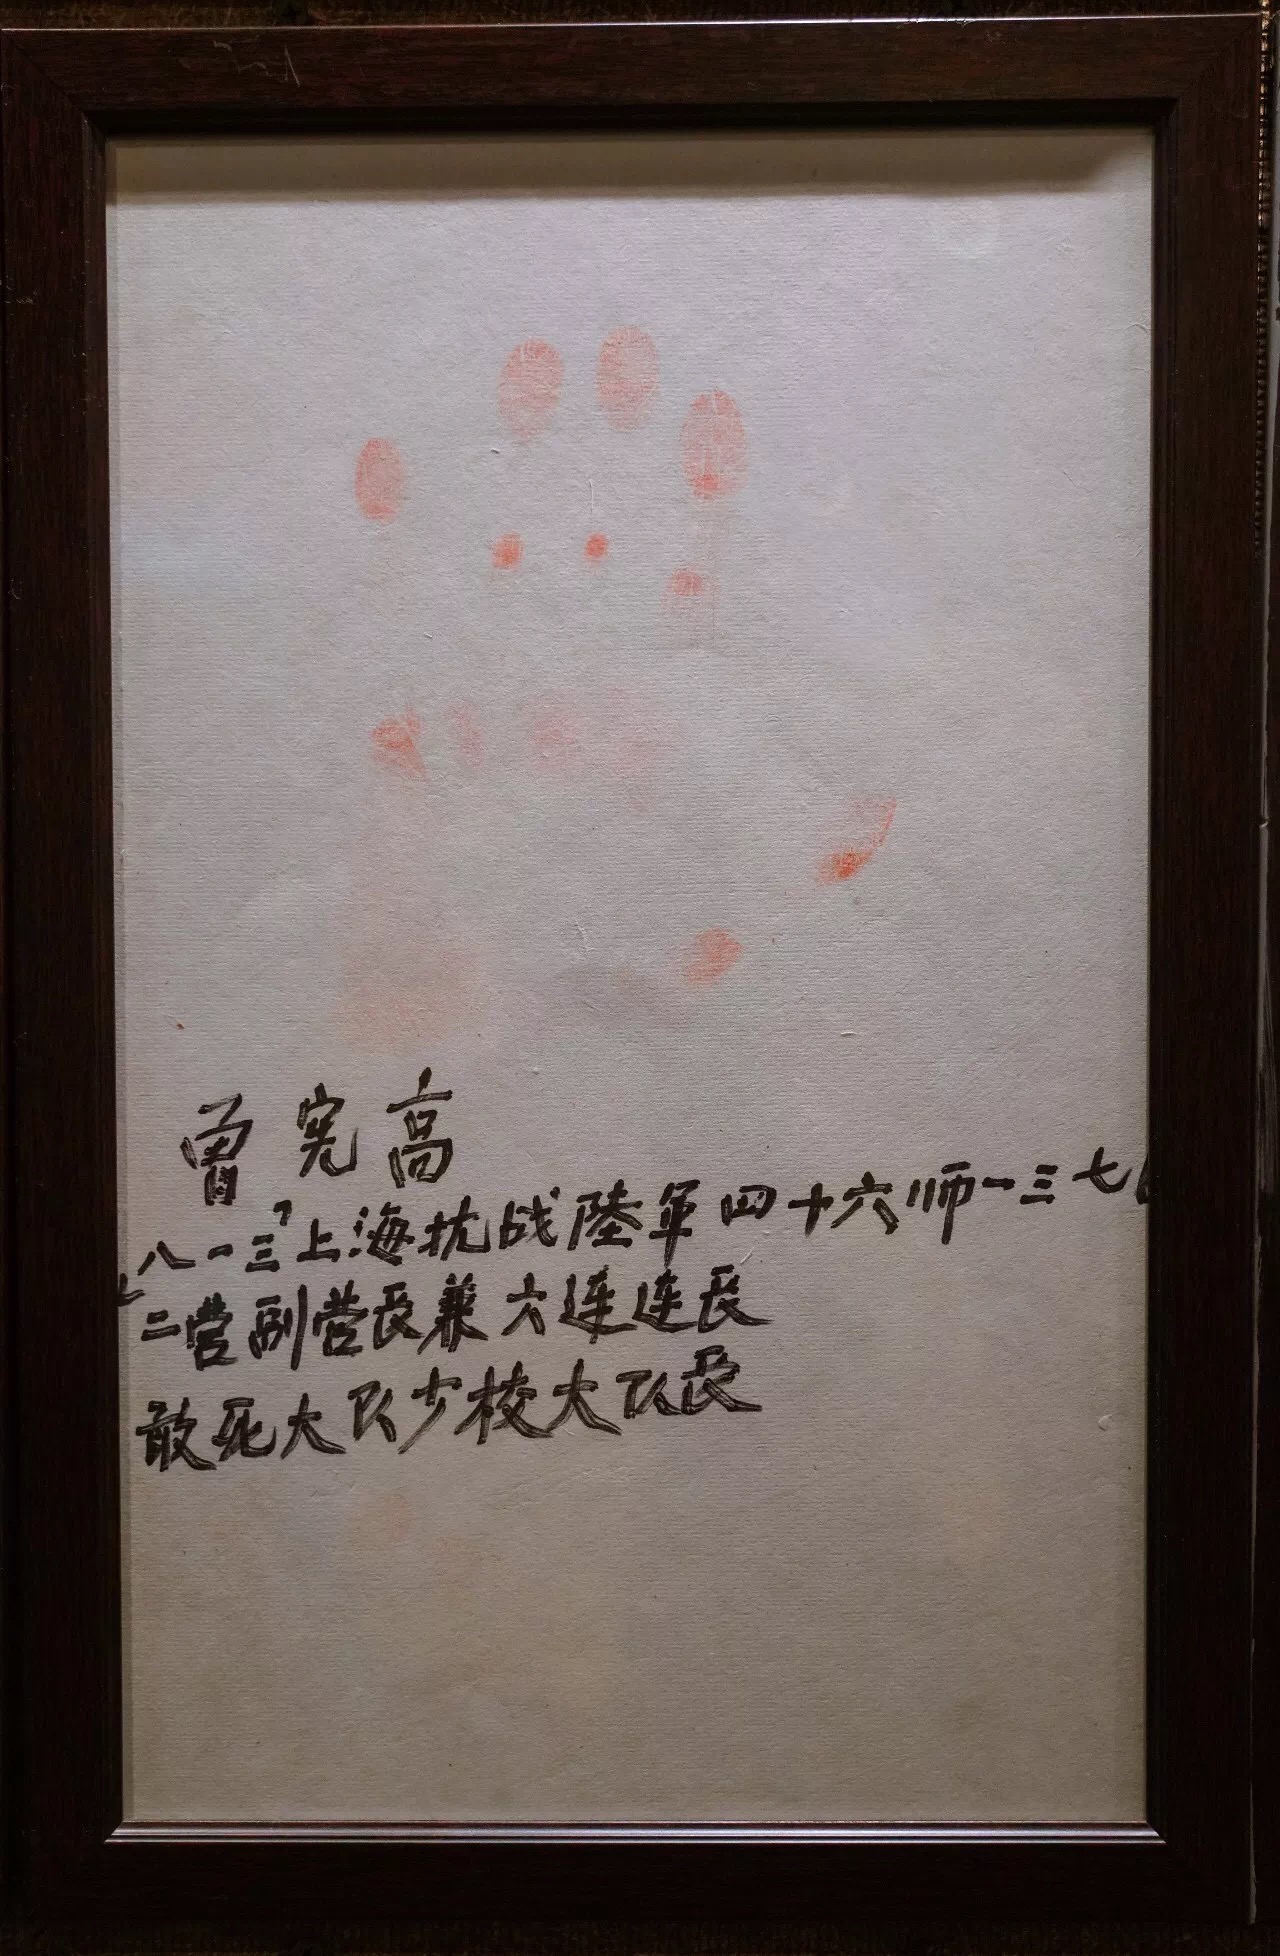 曾宪高
八一三"上海抗战陸军四十六师一三七
二营副营長兼六连连長
敢死大队少校大队長